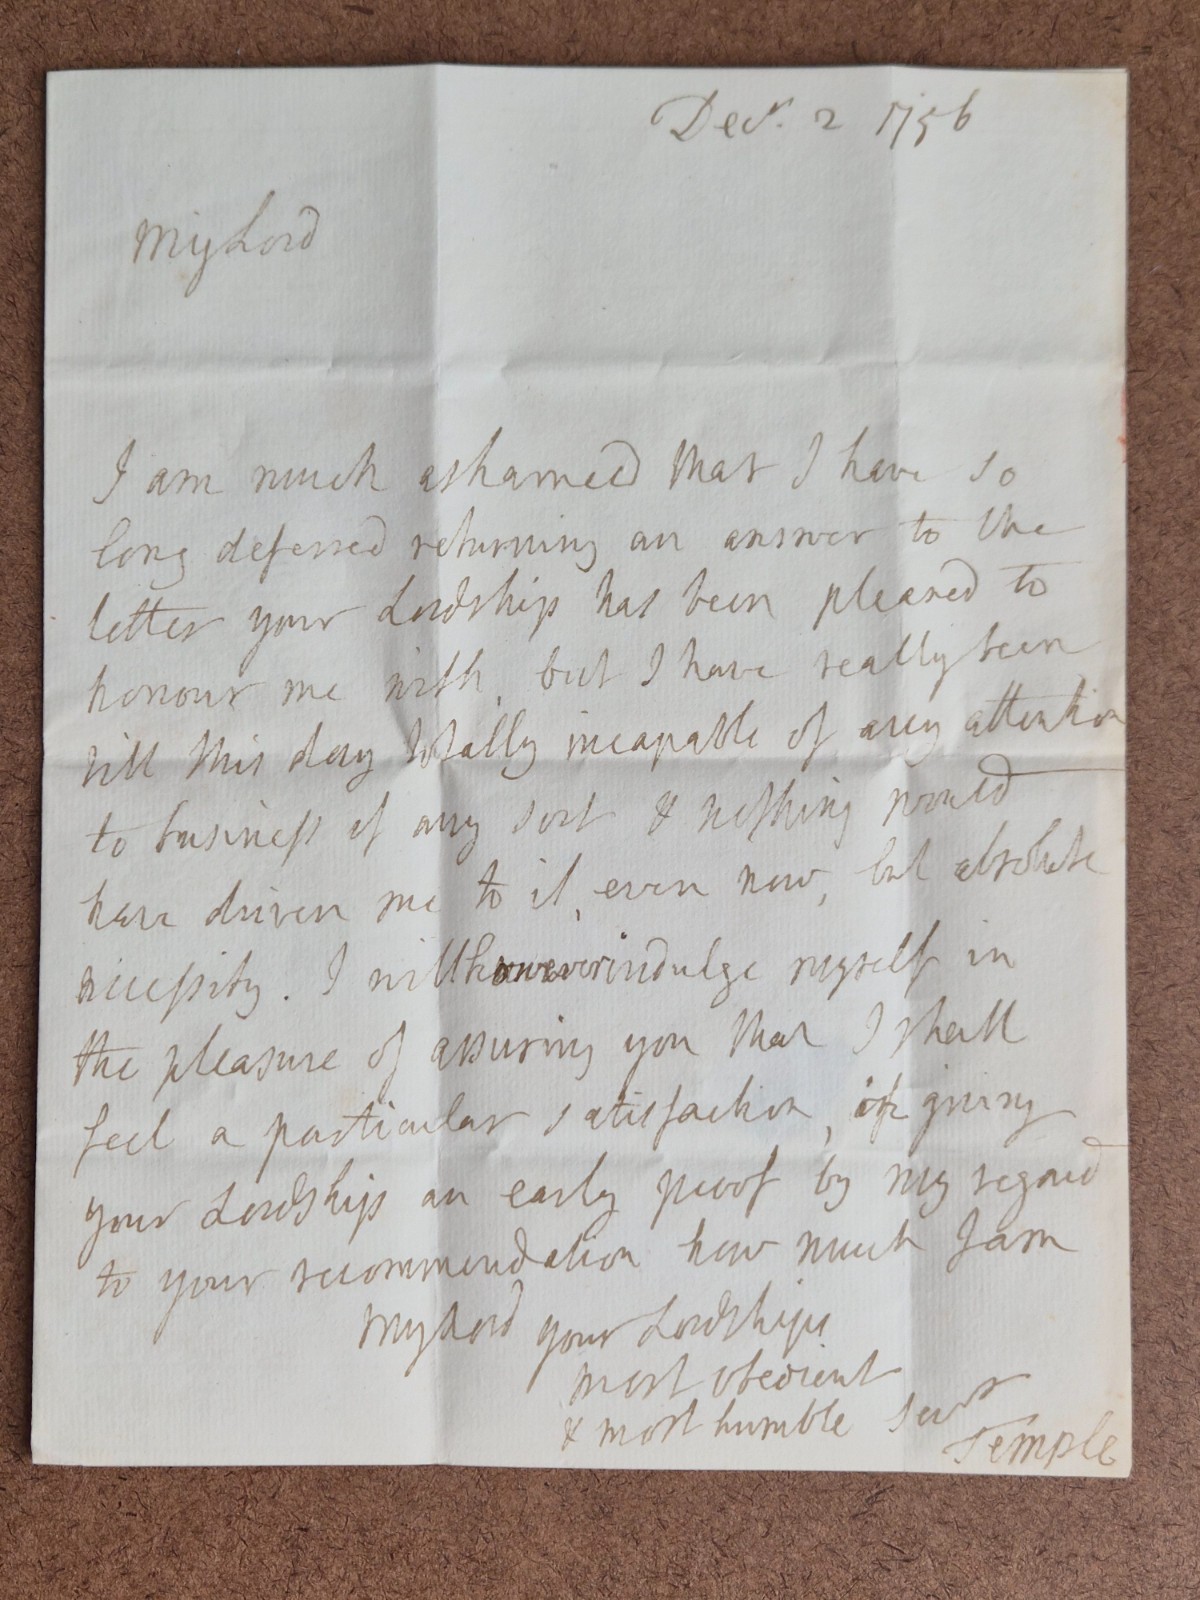 Decr. 2 1756
My Lord
I am much ashamed that I have so
long deferred returning an answer to the
letter your Lordship has been pleased to
honour me with, but I have really been
till this day totally incapable of any attention
to business of any sort & nothing would
have driven me to it, even now, but absolute
necessity. I will however indulge myself in
the pleasure of assuring you that I shall
feel a particular satisfaction, in giving
your Lordship an early proof by my regard
to your recommendation how much I am
My Lord your Lordships
most obedient
& most humble Servt
Temple